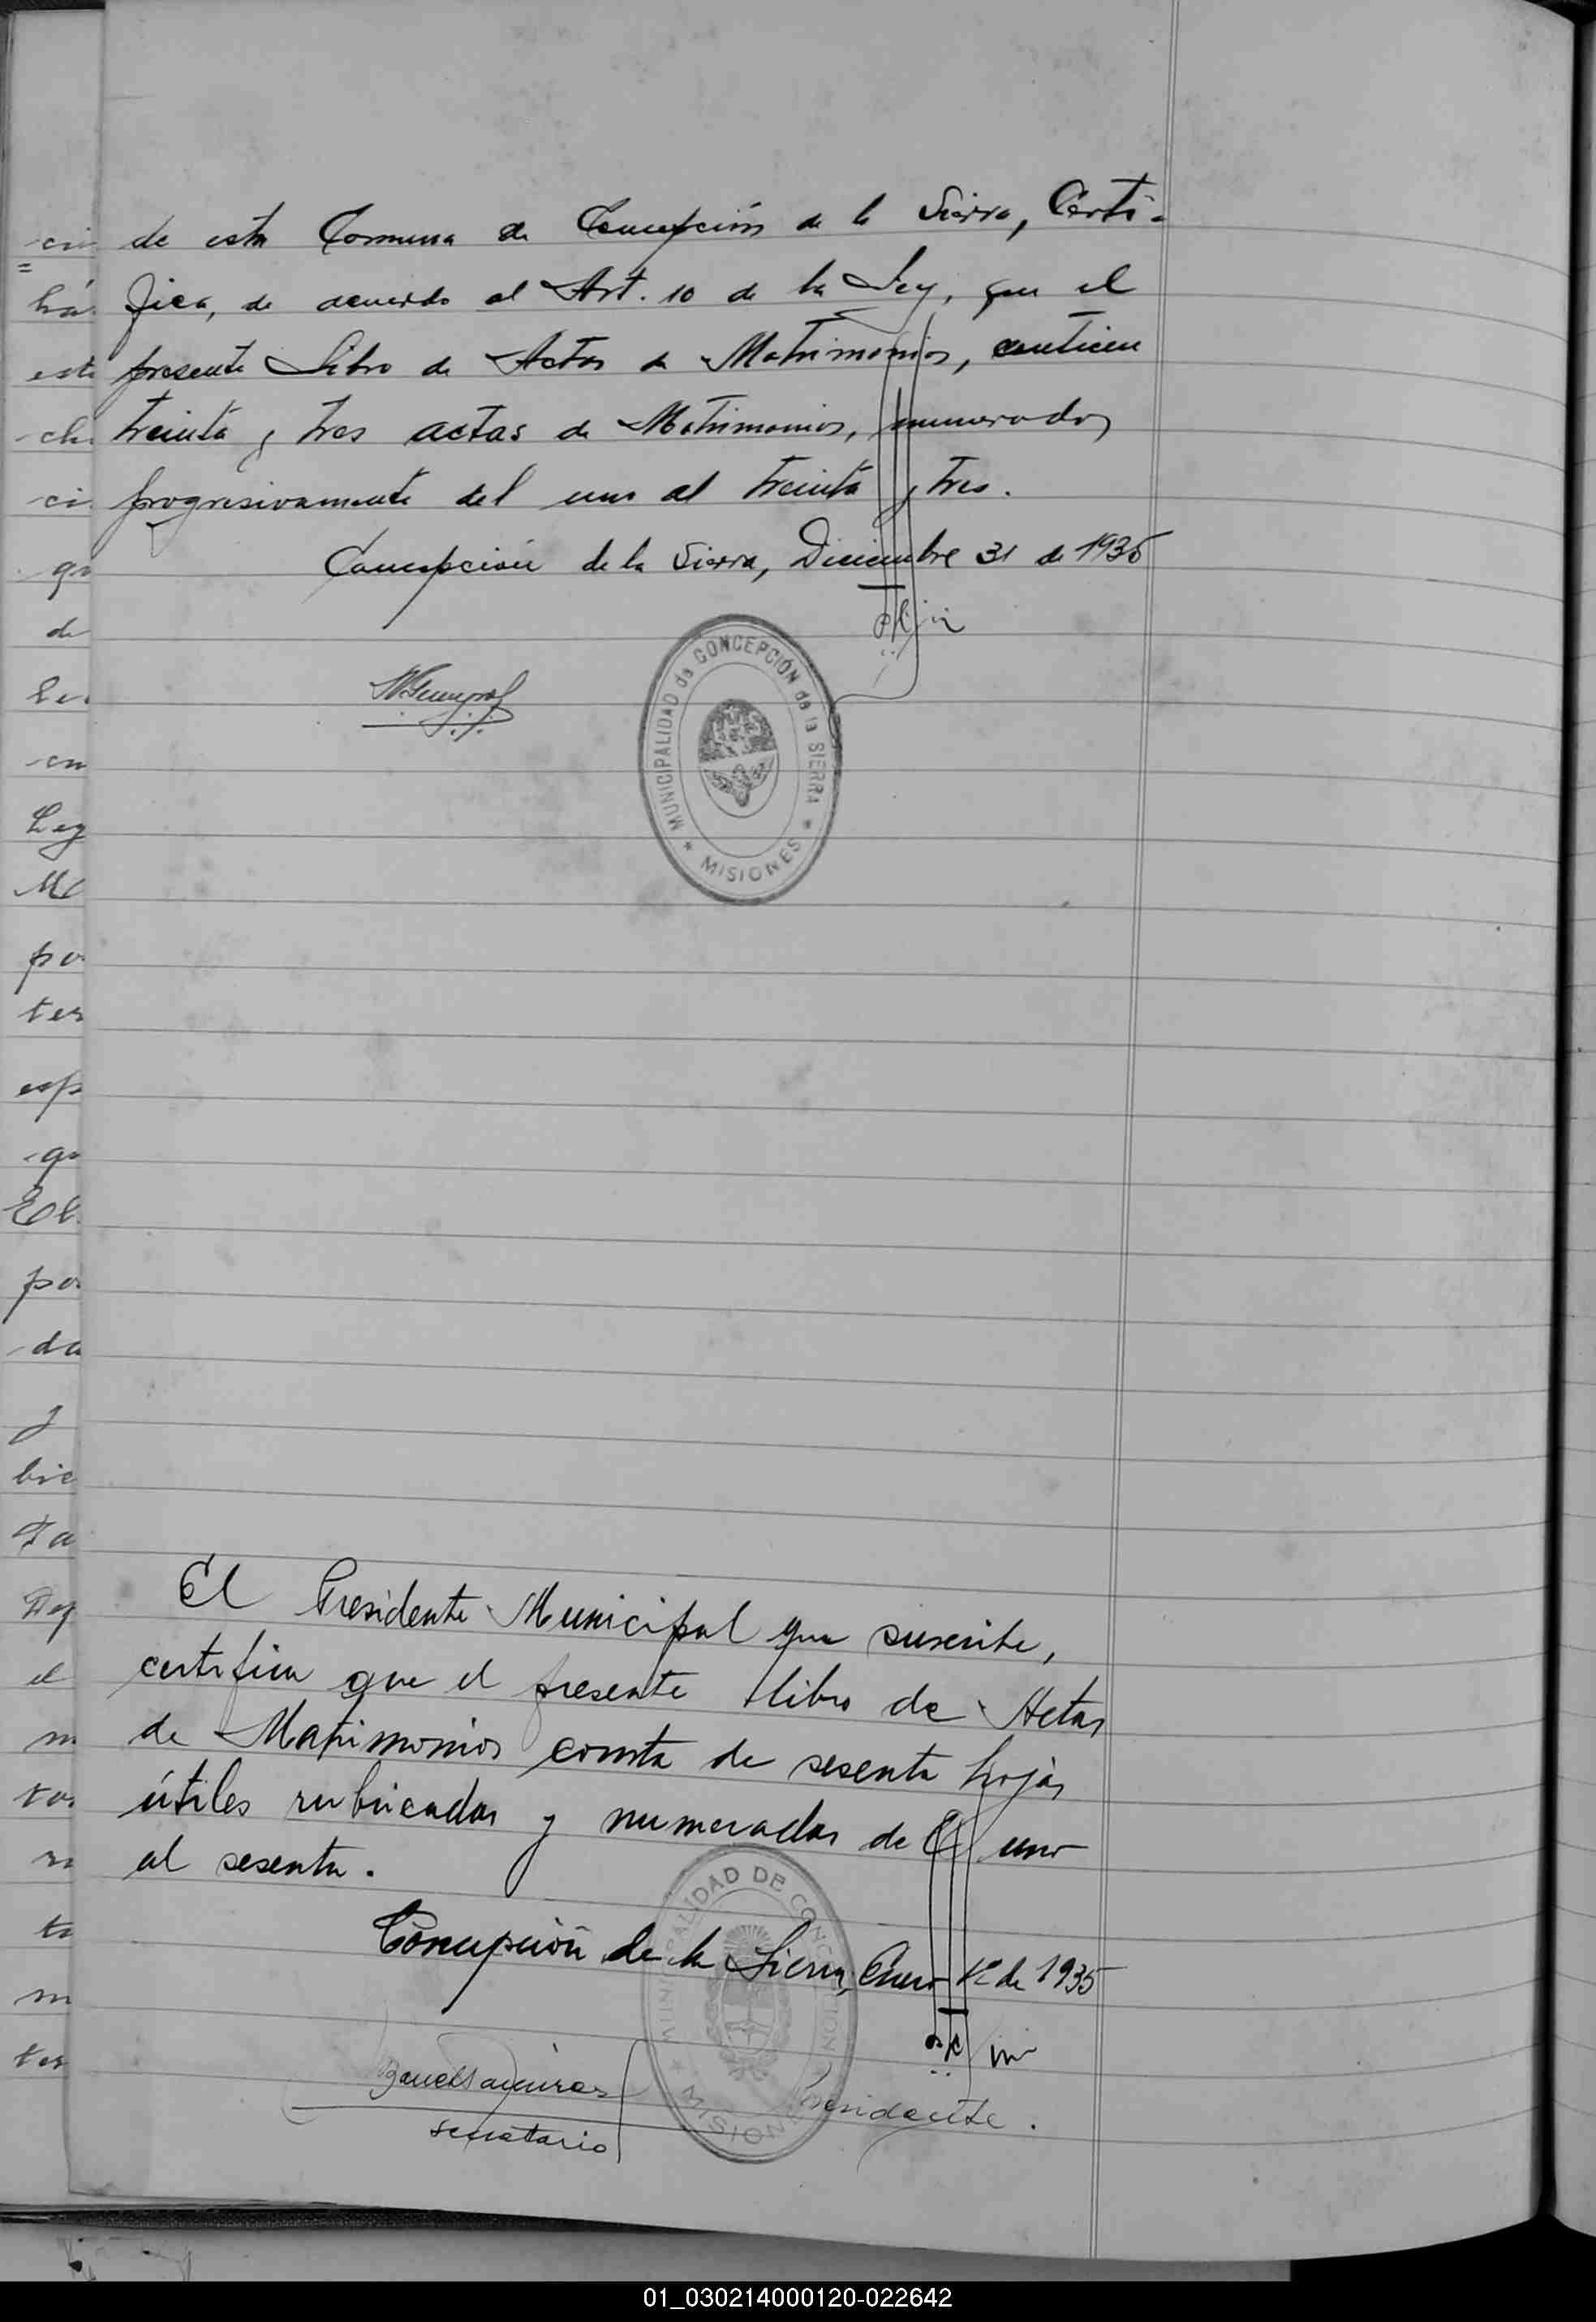 de esta Comuna de Concepción de la Sierra, Certi-
fica, de acuerdo al Art. 10 de la Ley, que el
presente Libro de Actas de Matrimonios, contiene
treinta y tres actas de Matrimonios, numerados
progresivamente del uno al treinta y tres.
Concepción de la Sierra, Diciembre 31 de 1935
MUNICIPALIDAD de CONCEPCIÓN de la SIERRA
MISIONES
El Presidente Municipal que suscribe,
certifica que el presente libro de Actas
de Matrimonios consta de sesenta hojas
útiles rubricadas y numeradas de uno
al sesenta.
Concepción de la Sierra, Enero 1º de 1935
MUNICIPALIDAD DE CONCEPCION
MISIONES
Presidente.
secretario
cn
há
esta
ci
de
en
Ley
po
ter
esp
El
po
da
y
bre
Ta
el
m
m
ter
01_030214000120-022642